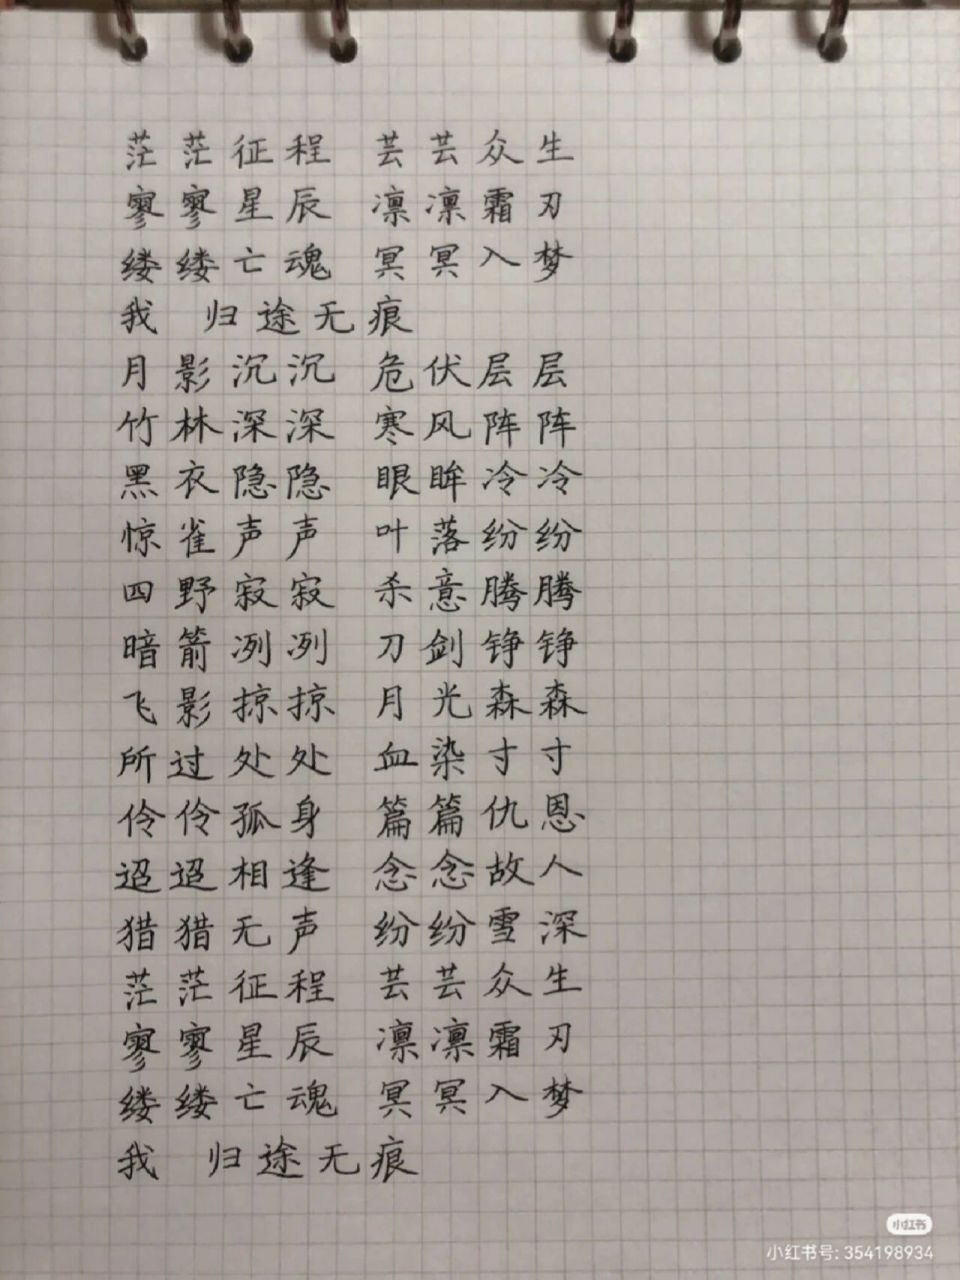 茫茫征程 芸芸众生
寥寥星辰 凛凛霜刃
缕缕亡魂 冥冥入梦
我 归途无痕
月影沉沉 危伏层层
竹林深深 寒风阵阵
黑衣隐隐 眼眸冷冷
惊雀声声 叶落纷纷
四野寂寂 杀意腾腾
暗箭冽冽 刀剑铮铮
飞影掠掠 月光森森
所过处处 血染寸寸
伶伶孤身 篇篇仇恩
迢迢相逢 念念故人
猎猎无声 纷纷雪深
茫茫征程 芸芸众生
寥寥星辰 凛凛霜刃
缕缕亡魂 冥冥入梦
我 归途无痕
小红书
小红书号: 354198934